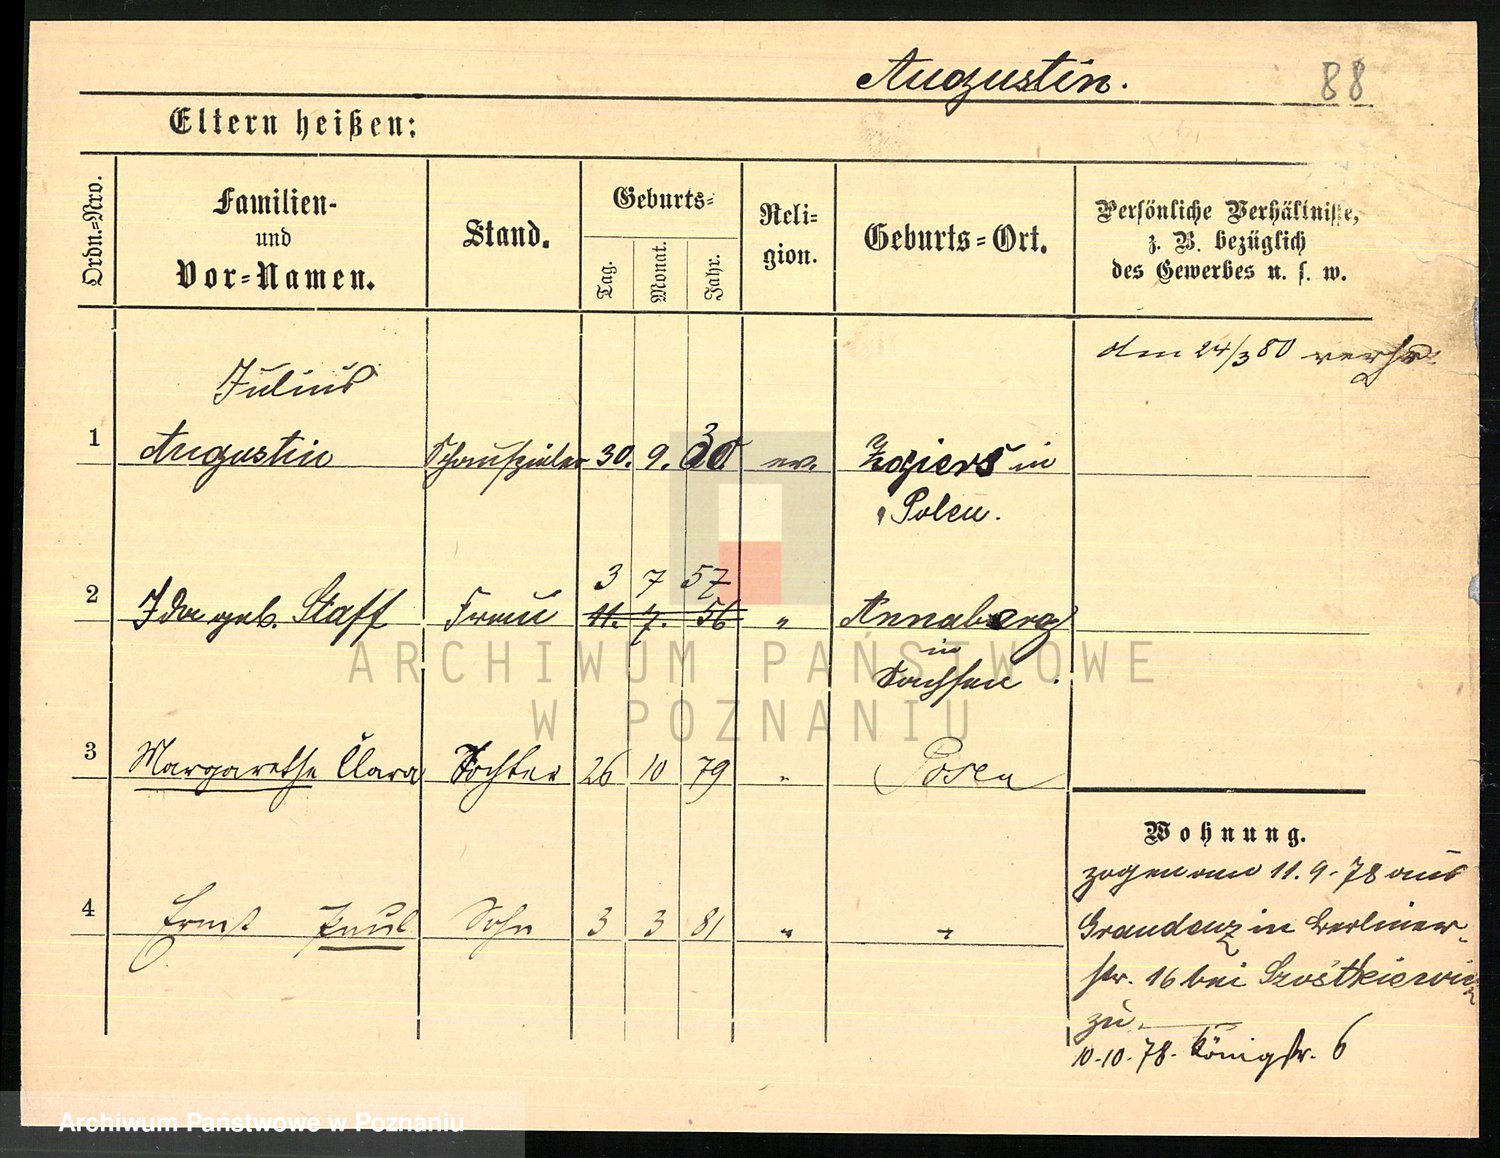 Augustin.
88
Eltern heißen:
Ordn.=Nro.
Familien-
und
Vor=Namen.
Stand.
Geburts=
Tag.
Monat.
Jahr.
Reli=
gion.
Geburts=Ort.
Persönliche Verhältnisse,
z. B. bezüglich
des Gewerbes u. s. w.
den 24/3 80 verh.
Julius
1 Augustin Schauspieler 30. 9. 30 ev. in
Polen.
3 7 57
2 Ida geb. Staff Frau 11. 7. 56 " Annaberg
in
Sachsen
3 Margarethe Clara Tochter 26 10 79 " Posen
4 Ernst Paul Sohn 3 3 81 " "
Wohnung.
zogen am 11. 9. 78 aus
Graudenz in Berliner-
str. 16 bei Szostkiewicz
zu.
10.10.78. Königstr. 6
ARCHIWUM PAŃSTWOWE
W POZNANIU
Archiwum Państwowe w Poznaniu